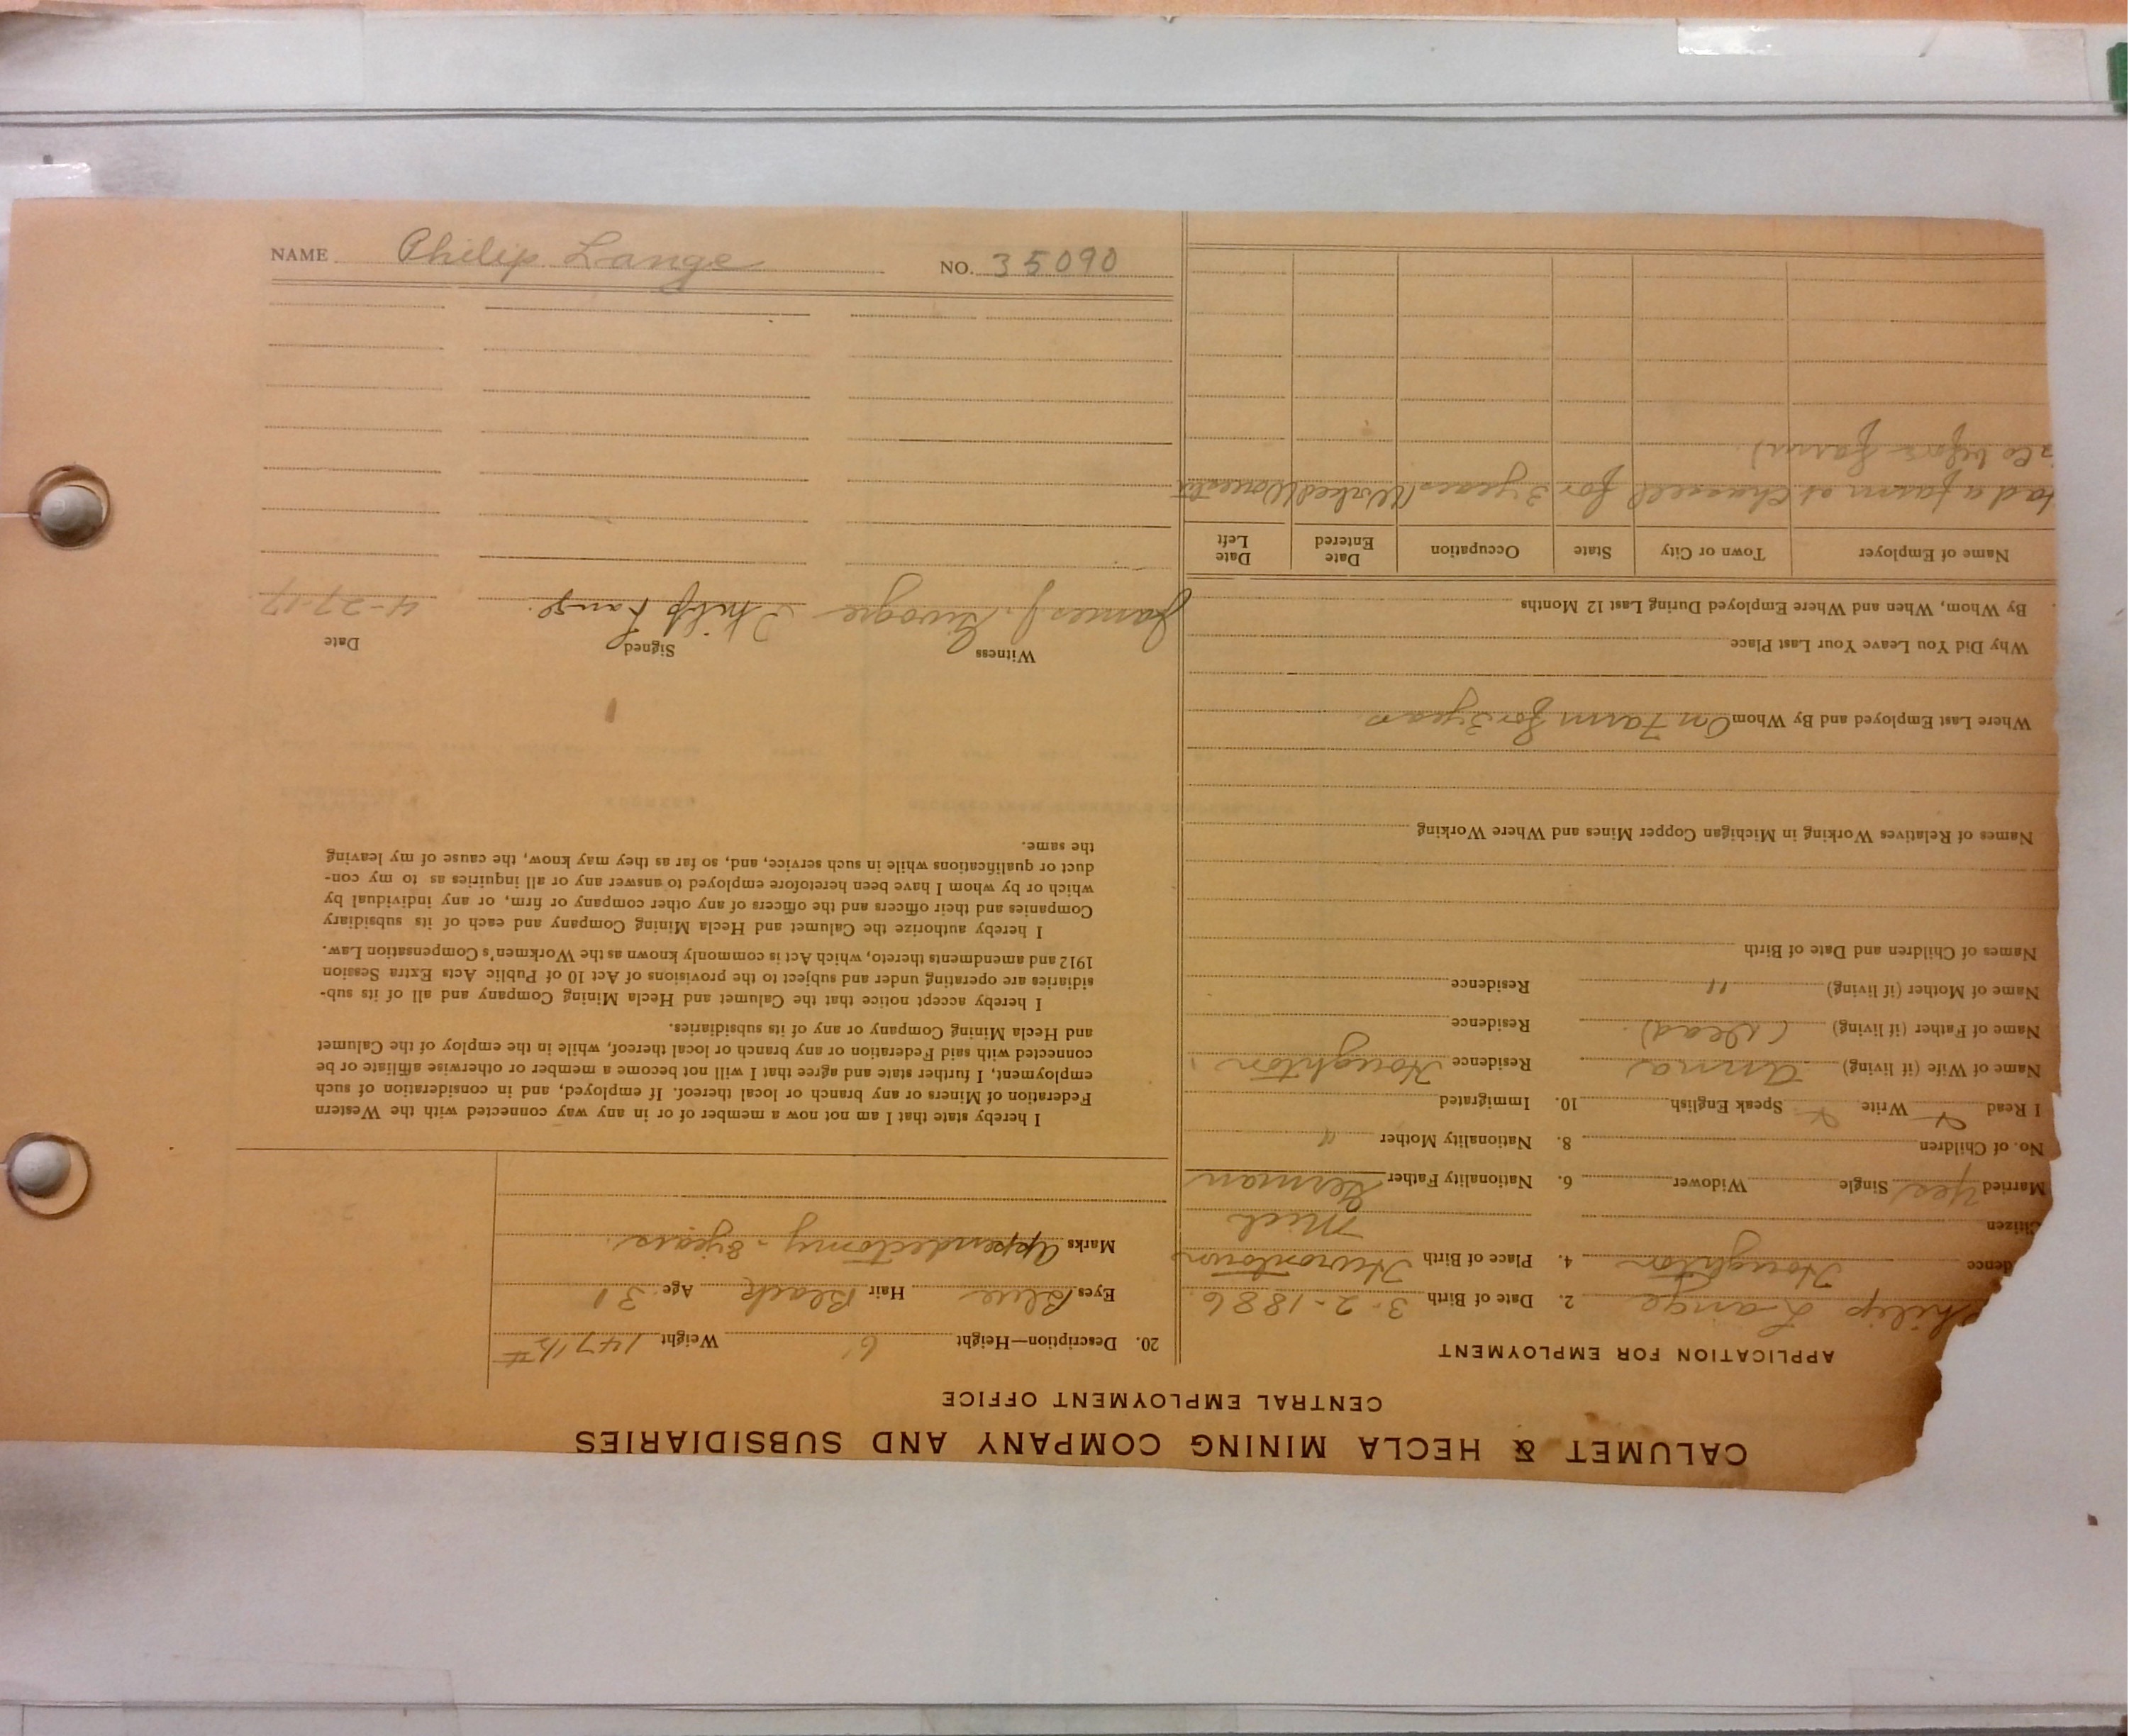 NAME Philip Lange NO. 35090
CALUMET & HECLA MINING COMPANY AND SUBSIDIARIES
CENTRAL EMPLOYMENT OFFICE
APPLICATION FOR EMPLOYMENT
Philip Lange 2. Date of Birth 3-2-1886
dence Houghton 4. Place of Birth Hurontown
Citizen Mich
Married Yes Single Widower 6. Nationality Father German
No. of Children 8. Nationality Mother "
I Read Write Speak English 10. Immigrated
Name of Wife (if living) Anna Residence Houghton
Name of Father (if living) (Dead) Residence
Name of Mother (if living) " Residence
Names of Children and Date of Birth
Names of Relatives Working in Michigan Copper Mines and Where Working
Where Last Employed and By Whom On Farm for 3 years
Why Did You Leave Your Last Place
By Whom, When and Where Employed During Last 12 Months
Name of Employer Town or City State Occupation Date Entered Date Left
had a farm at Chassell for 3 years (Worked
Co before farm)
20. Description—Height 6' Weight 147 1/2 #
Eyes Blue Hair Black Age 31
Marks Appendectomy - 8 years.
I hereby state that I am not now a member of or in any way connected with the Western
Federation of Miners or any branch or local thereof. If employed, and in consideration of such
employment, I further state and agree that I will not become a member or otherwise affiliate or be
connected with said Federation or any branch or local thereof, while in the employ of the Calumet
and Hecla Mining Company or any of its subsidiaries.
I hereby accept notice that the Calumet and Hecla Mining Company and all of its sub-
sidiaries are operating under and subject to the provisions of Act 10 of Public Acts Extra Session
1912 and amendments thereto, which Act is commonly known as the Workmen's Compensation Law.
I hereby authorize the Calumet and Hecla Mining Company and each of its subsidiary
Companies and their officers and the officers of any other company or firm, or any individual by
which or by whom I have been heretofore employed to answer any or all inquiries as to my con-
duct or qualifications while in such service, and, so far as they may know, the cause of my leaving
the same.
Witness Signed Date
James J. Philip Lange. 4-27-17